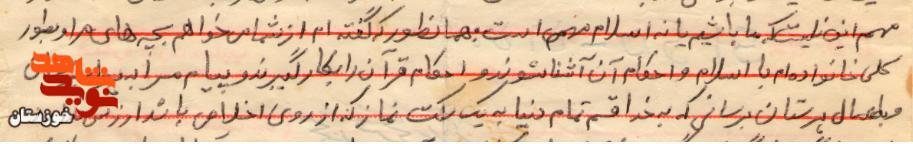 مهم این نیست که ما باشیم یا نه اسلام مهم است همانطور که گفته ام از شما می خواهم بچه های مرا و بطور
کلی خانواده ام با اسلام و احکام آن آشنا شوند و احکام قرآن را بکار گیرند و پیام مرا به
برسانی که به خدا قسم تمام دنیا به یک رکعت نماز که از روی اخلاص باشد ارزش
شاهد
نوید
خوزستان